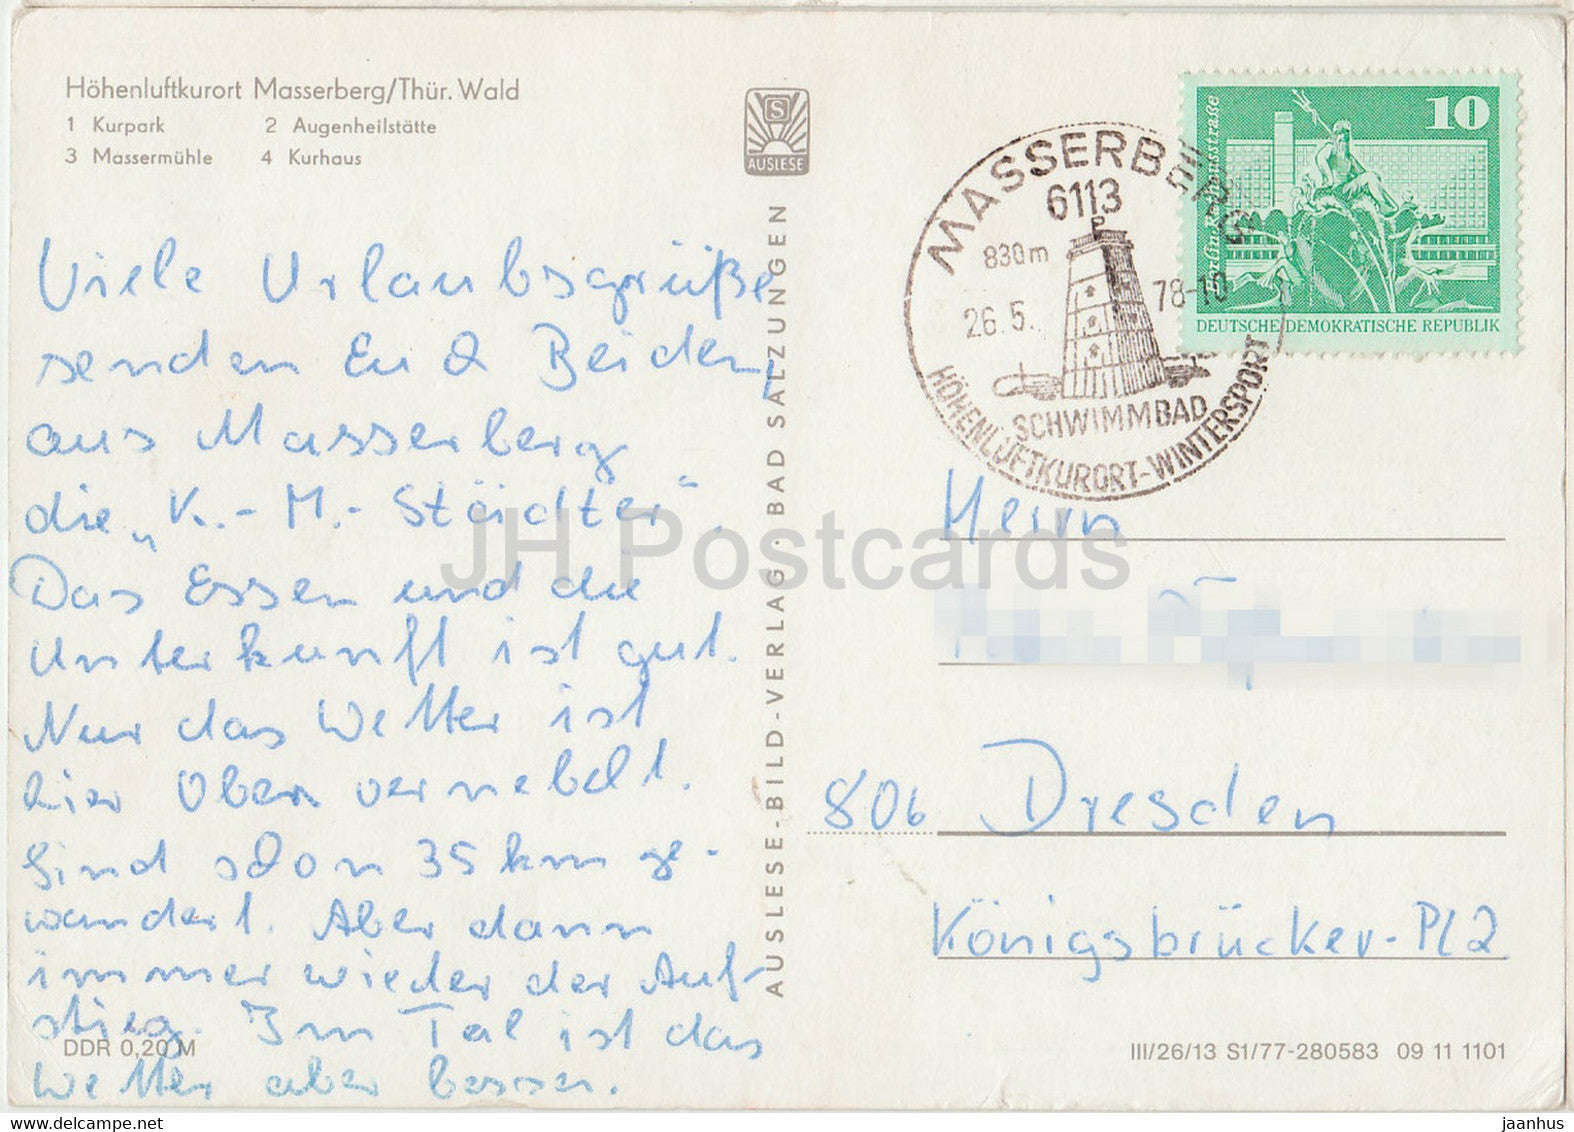 Höhenluftkurort Masserberg/Thür. Wald
1 Kurpark 2 Augenheilstätte
3 Massermühle 4 Kurhaus
S
AUSLESE
Viele Urlaubsgrüße
senden Euch Beiden,
aus Masserberg
die „K.-M.-Städter".
Das Essen und die
Unterkunft ist gut.
Nur das Wetter ist
hier Oben vernebelt.
Sind schon 35 km ge-
wandert. Aber dann
immer wieder der Auf-
stieg. Im Tal ist das
Wetter aber besser.
DDR 0,20 M
AUSLESE-BILD-VERLAG · BAD SALZUNGEN
MASSERBERG
6113
830m
26.5. 78-10
SCHWIMMBAD
HÖHENLUFTKURORT-WINTERSPORT
10
DEUTSCHE DEMOKRATISCHE REPUBLIK
Herrn
806 Dresden
Königsbrücker-Pl 2
III/26/13 S1/77-280583 09 11 1101
JH Postcards
www.delcampe.net
jaanhus